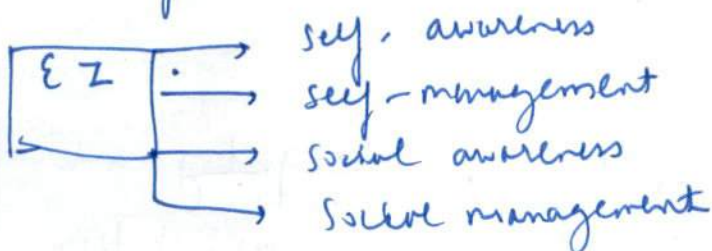 self. awareness
EI
self-management
social awareness
Social management